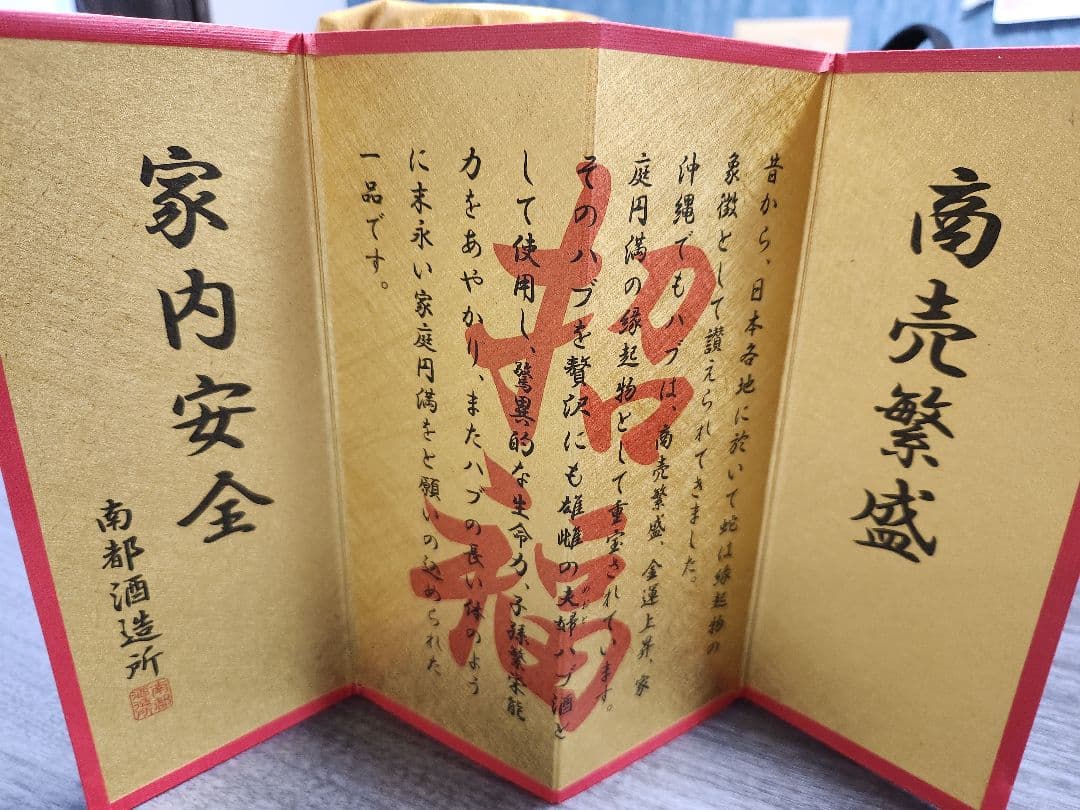 商売繁盛
招福
昔から、日本各地に於いて蛇は縁起物の
象徴として讃えられてきました。
沖縄でもハブは、商売繁盛、金運上昇、家
庭円満の縁起物として重宝されています。
そのハブを贅沢にも雄雌の夫婦ハブ酒と
して使用し、驚異的な生命力、子孫繁栄能
力をあやかり、またハブの長い体のよう
に末永い家庭円満をと願いの込められた
一品です。
家内安全
南都酒造所